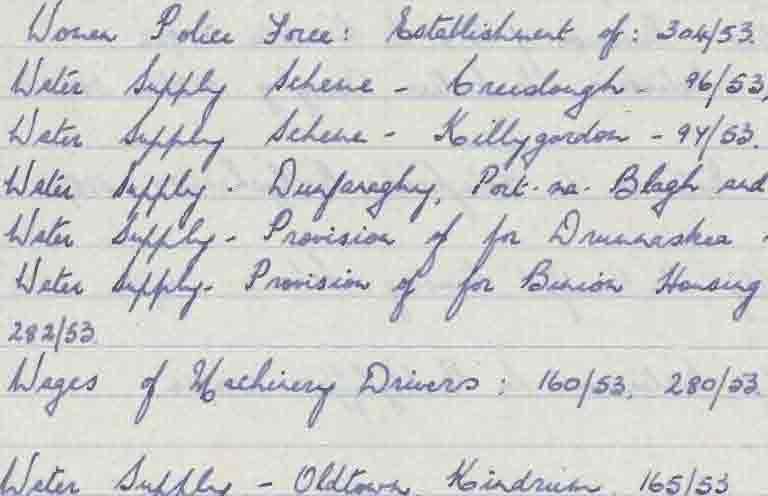 Women Police Force: Establishment of: 304/53.
Water Supply Scheme - Creeslough - 96/53,
Water Supply Scheme - Killygordon - 97/53.
Water Supply - Dunfanaghy, Port-na-Blagh and
Water Supply - Provision of for Drumnaskea -
Water Supply - Provision of for Binion Housing
282/53.
Wages of Machinery Drivers: 160/53, 280/53.
Water Supply - Oldtown, Kindrum 165/53